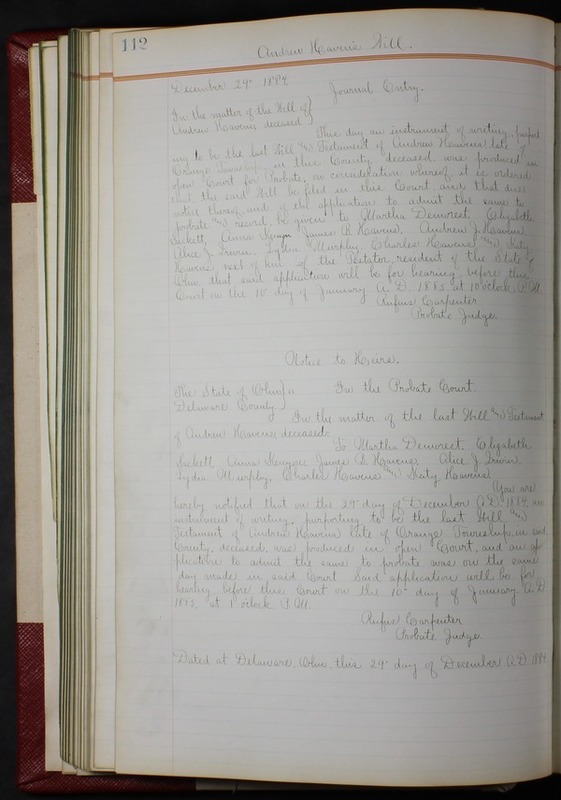 112
Andrew Havens Will.
December 29" 1884
Journal Entry.
In the matter of the Will of
Andrew Havens, deceased
This day an instrument of writing, purport
ing to be the last Will and Testament of Andrew Havens late of
Orange Township in this County deceased was produced in
open Court for Probate; on consideration whereof it is ordered
that the said Will be filed in this Court and that due
notice thereof and of the application to admit the same to
probate and record be given to Martha Demorest, Elizabeth
Sackett, Anna James B. Havens, Andrew J. Havens
Alice J. Irwin, Lydia Murphy, Charles Havens and Katy
Havens, next of kin of the Testator, resident of the State of
Ohio, that said application will be for hearing before this
Court on the 10" day of January A. D. 1885 at 1 o'clock P.M.
Rufus Carpenter
Probate Judge.
Notice to Heirs.
The State of Ohio
Delaware County. In the Probate Court.
In the matter of the last Will and Testament
of Andrew Havens, deceased.
To Martha Demorest, Elizabeth
Sackett, Anna James B. Havens, Alice J. Irwin
Lydia Murphy, Charles Havens and Katy Havens
You are
hereby notified that on the 29" day of December A.D. 1884, an
instrument of writing, purporting to be the last Will and
Testament of Andrew Havens late of Orange Township, in said
County, deceased, was produced in open Court, and an ap
plication to admit the same to probate was on the same
day made in said Court. Said application will be for
hearing before this Court on the 10" day of January A.D.
1885, at 1 o'clock P.M.
Rufus Carpenter
Probate Judge
Dated at Delaware, Ohio, this 29" day of December A.D. 1884